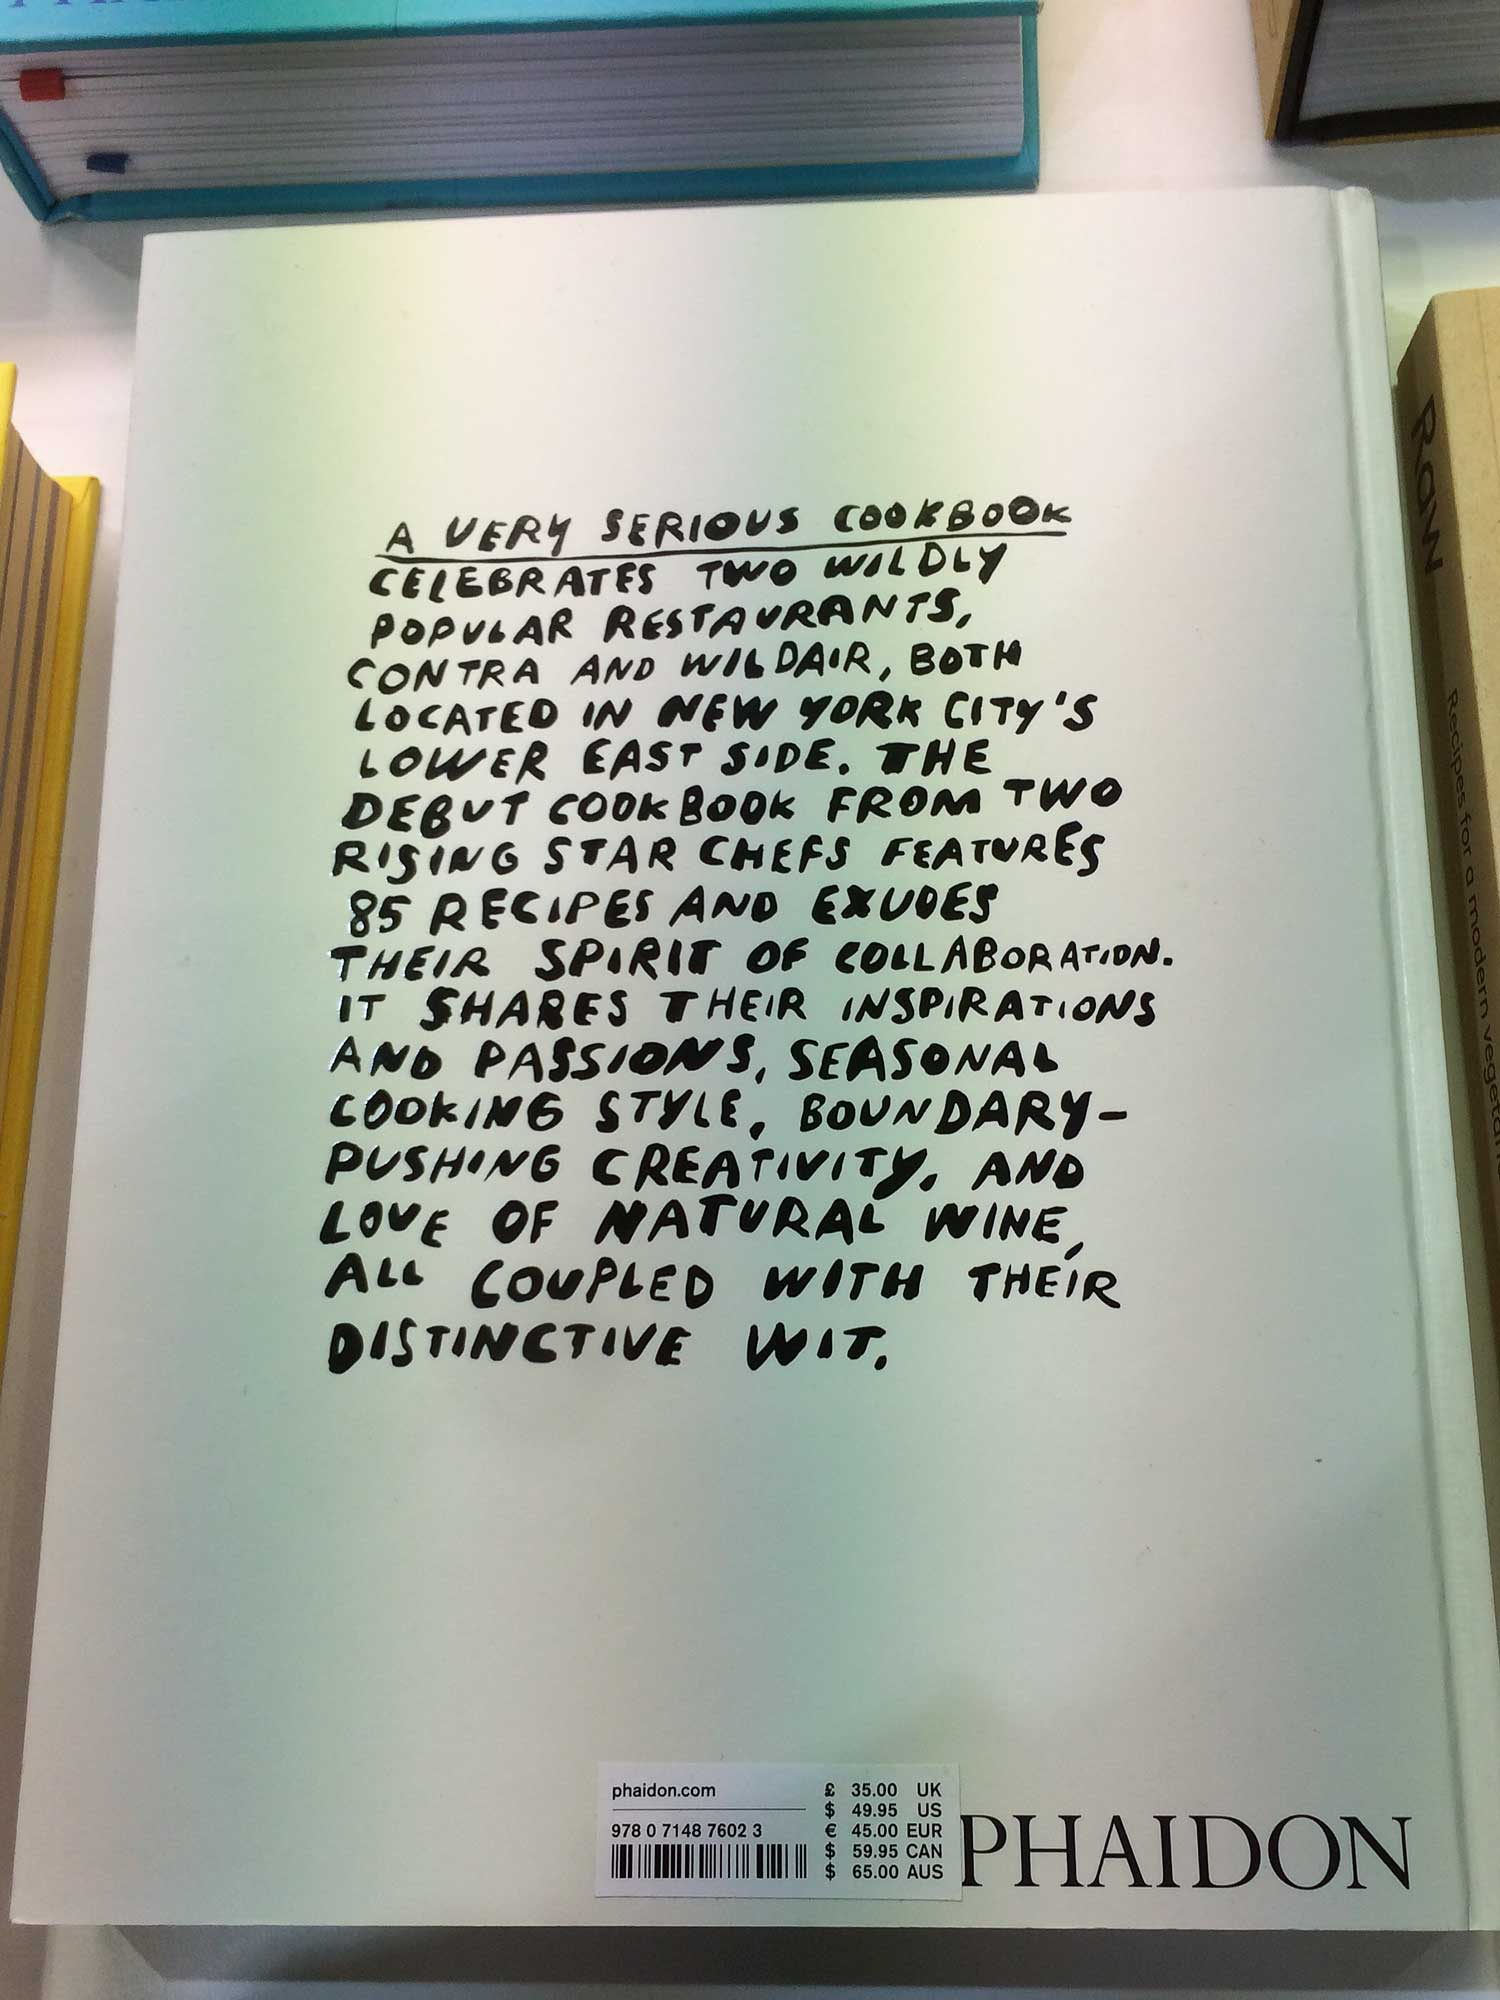 A VERY SERIOUS COOKBOOK
CELEBRATES TWO WILDLY
POPULAR RESTAURANTS,
CONTRA AND WILDAIR, BOTH
LOCATED IN NEW YORK CITY'S
LOWER EAST SIDE. THE
DEBUT COOKBOOK FROM TWO
RISING STAR CHEFS FEATURES
85 RECIPES AND EXUDES
THEIR SPIRIT OF COLLABORATION.
IT SHARES THEIR INSPIRATIONS
AND PASSIONS, SEASONAL
COOKING STYLE, BOUNDARY-
PUSHING CREATIVITY, AND
LOVE OF NATURAL WINE,
ALL COUPLED WITH THEIR
DISTINCTIVE WIT.
phaidon.com
978 0 7148 7602 3
£ 35.00 UK
$ 49.95 US
€ 45.00 EUR
$ 59.95 CAN
$ 65.00 AUS
PHAIDON
Raw
Recipes for a modern